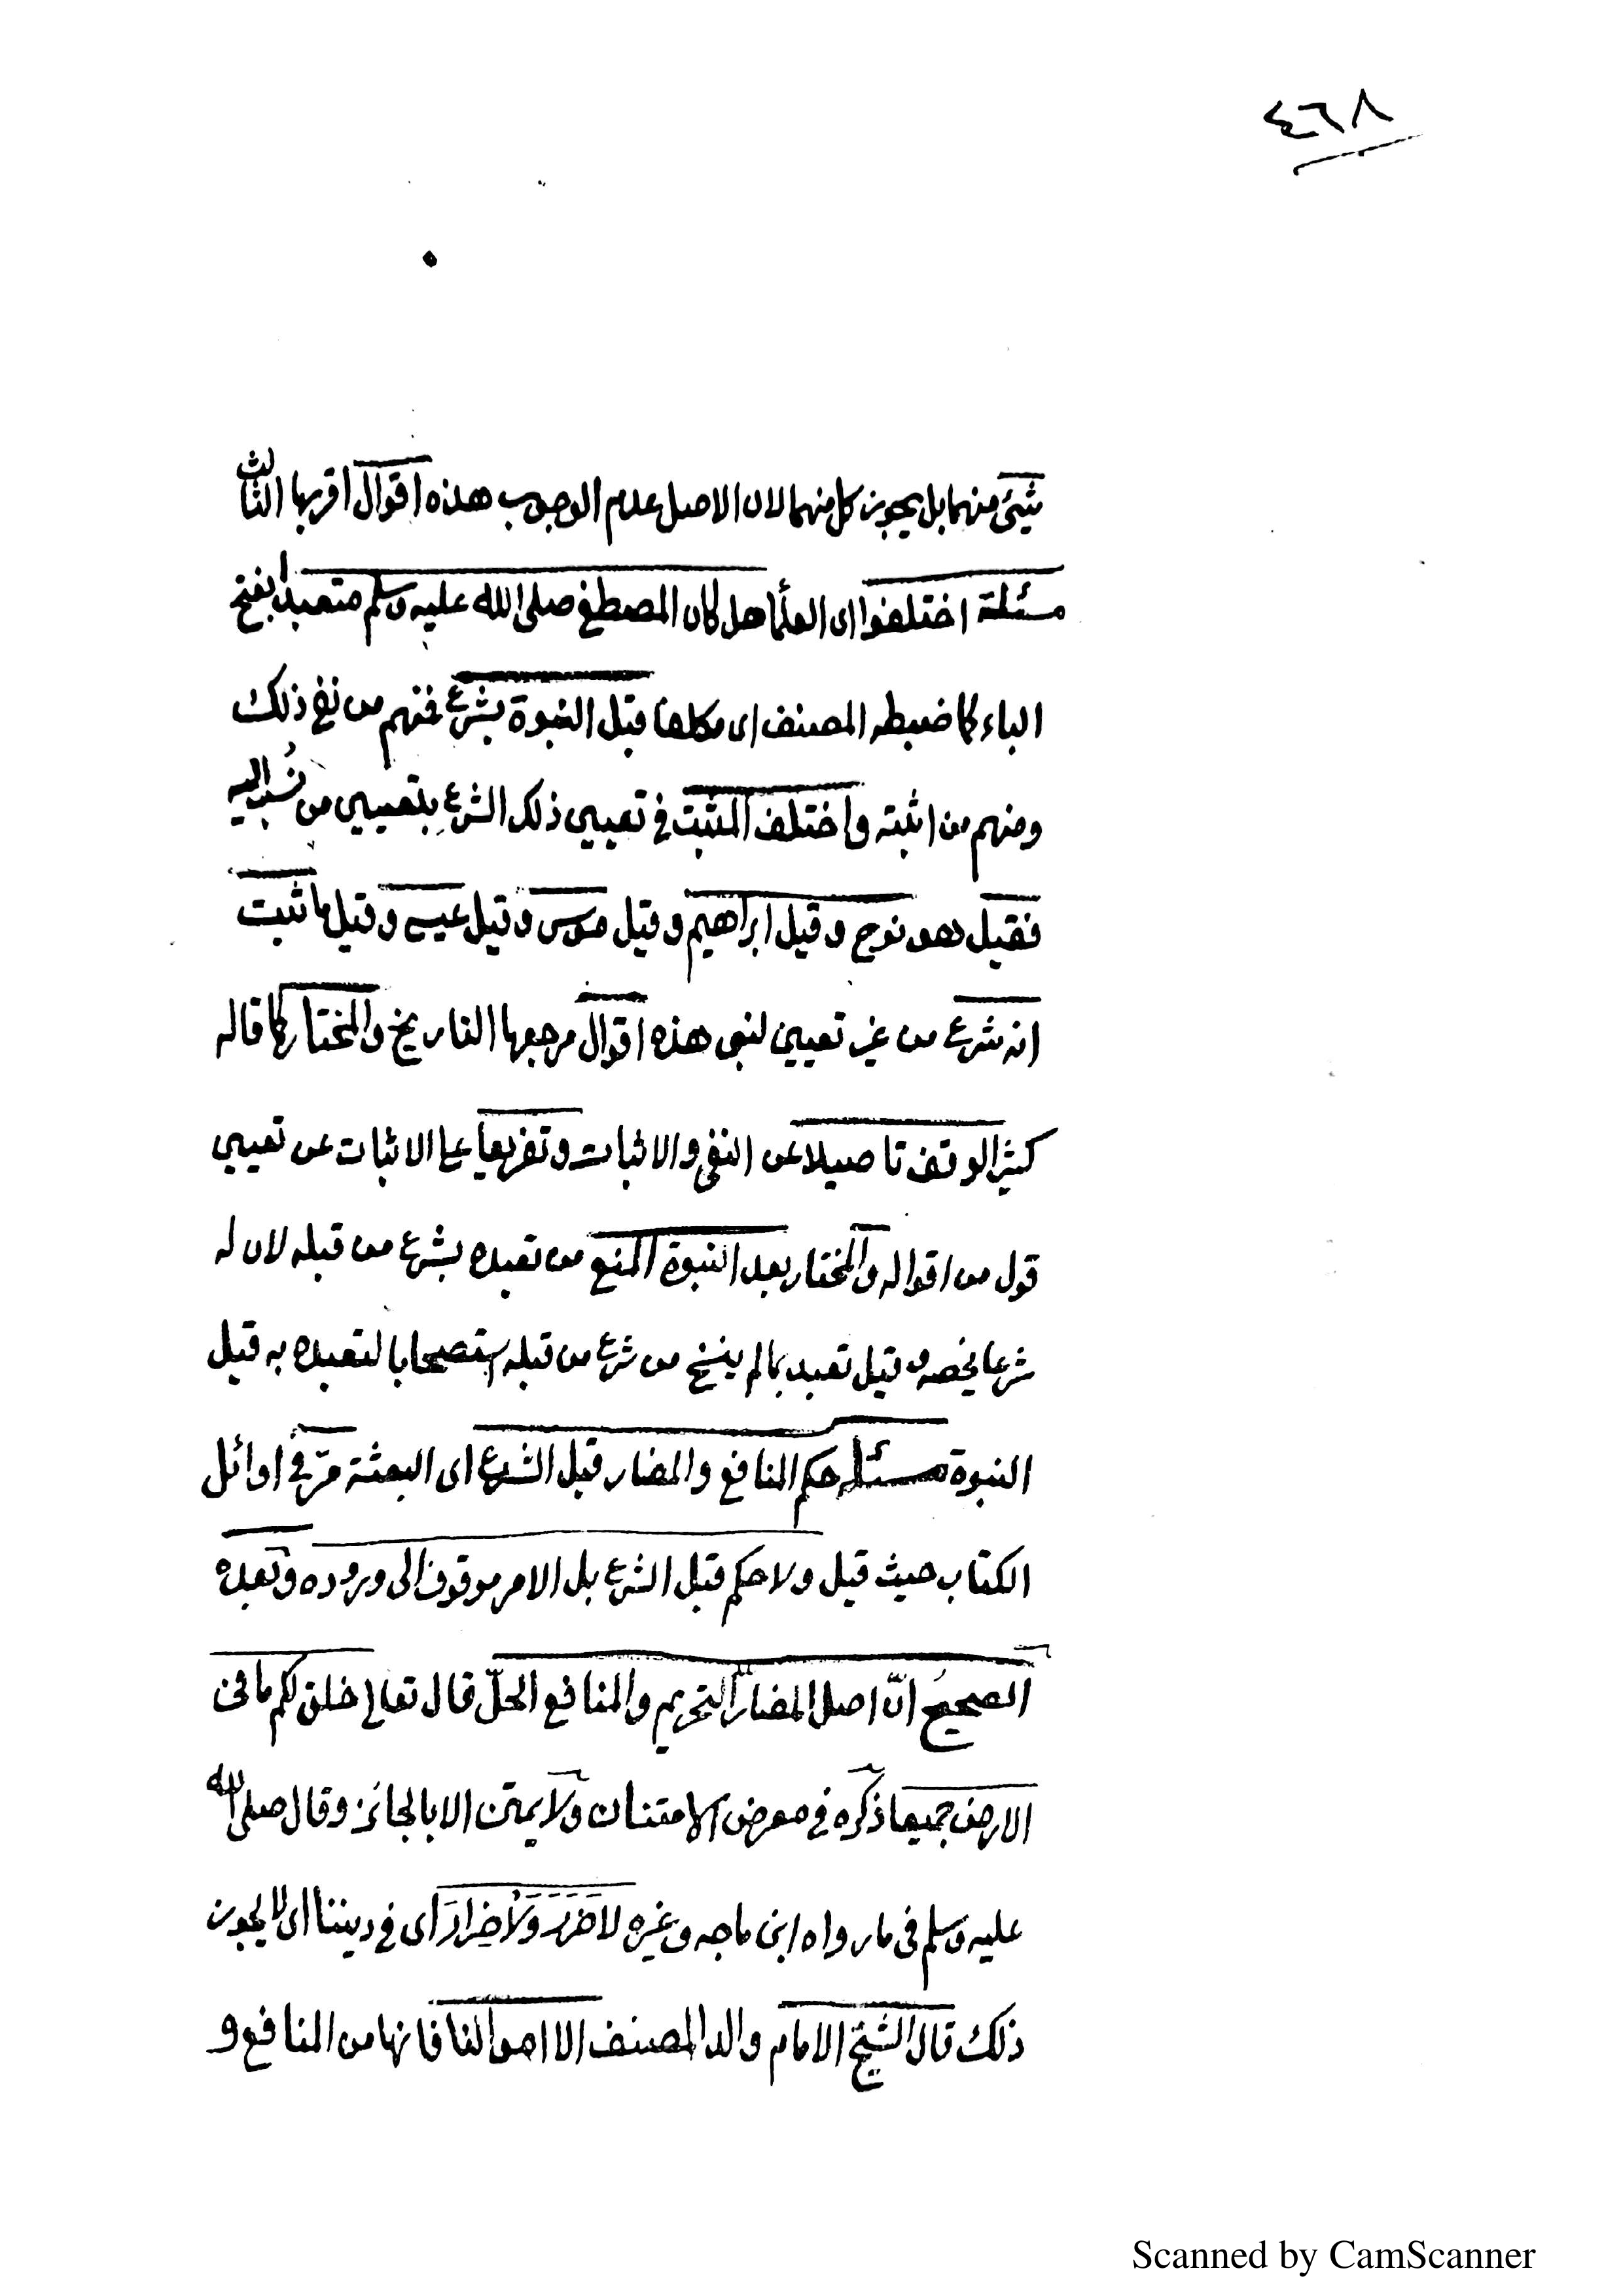 ٤٦٨
شيئ منهما بل يجوز كل منهما لان الاصل عدم الوجوب هذه اقوال اقربها الثالث
مسئلة اختلفوا اى العلما هل كان المصطفى صلى الله عليه وسلم متعبدا بفتح
الباء كما ضبطه المصنف اى مكلفا قبل النبوة بشرع فمنهم من نفى ذلك
ومنهم من اثبته واختلف المثبت فى تعيين ذلك الشرع بتعيين من نُسب اليه
فقيل هو نوح وقيل ابراهيم وقيل موسى وقيل عيسى وقيل ما ثبت
انه شرع من غير تعيين لنبى هذه اقوال مرجعها التاريخ والمختار كما قاله
كثير الوقف تاصيلا عن النفى والاثبات وتفريعا على الاثبات عن تعيين
قول من اقواله والمختار بعد النبوة المنع من تعبده بشرع من قبله لان له
شرعا يخصه وقيل تعبد بما لم ينسخ من شرع من قبله استصحابا لتعبده به قبل
النبوة مسئلة حكم المنافع والمضار قبل الشرع اى البعثة مرّ فى اوائل
الكتاب حيث قيل ولا حكم قبل الشرع بل الامر موقوف الى وروده وبعده
الصحيح انّ اصل المضارّ التحريم والمنافع الحلّ قال تعالى خلق لكم ما فى
الارض جميعا ذكره فى معرض الامتنان ولا يمتن الا بالجائز وقال صلى الله
عليه وسلم فى ما رواه ابن ماجه وغيره لاضَرَرَ وَلَاضِرارَ اى فى ديننا اى لا يجوز
ذلك قال الشيخ الامام والد المصنف الا اموالنا فانها من المنافع و
Scanned by CamScanner